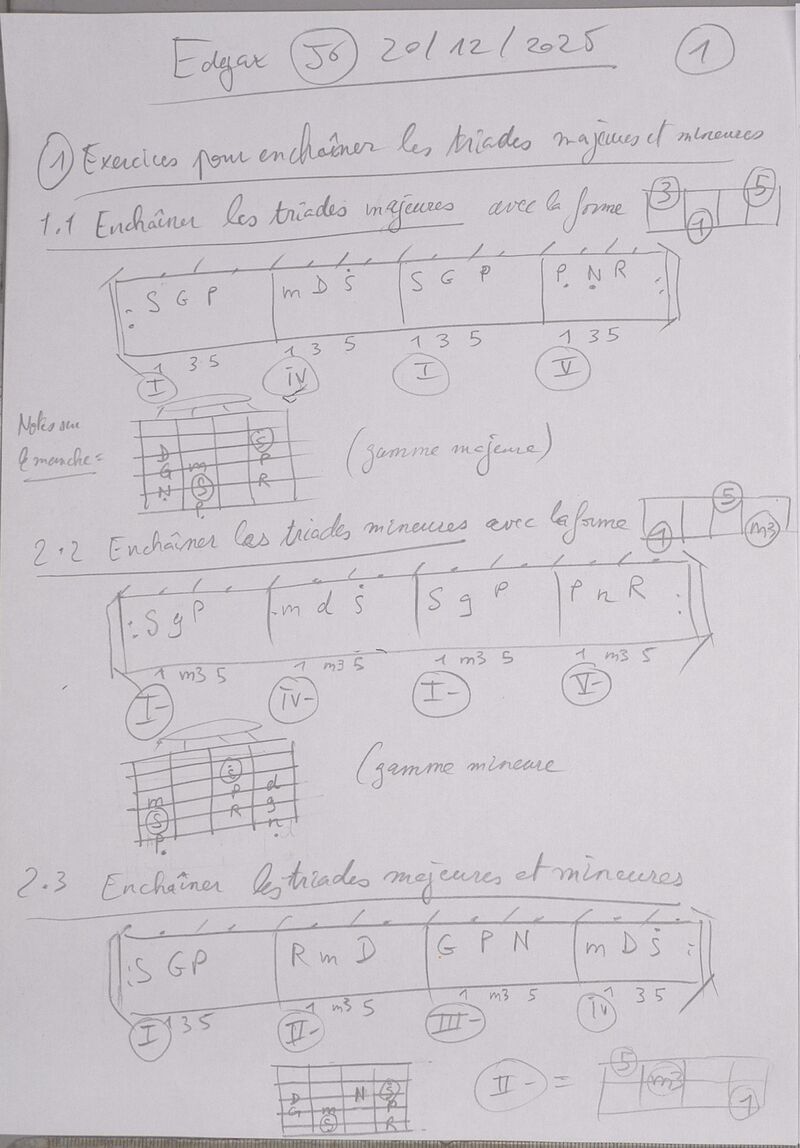 Edgar J6 20/12/2025 1
1 Exercices pour enchaîner les triades majeures et mineures
1.1 Enchaîner les triades majeures avec la forme 3 1 5
: S G P | m D Ṡ | S G P | P. Ṇ R :
1 3 5 1 3 5 1 3 5 1 3 5
I iv I V
Notes sur
le manche =
Ṡ
D P
G m R
Ṇ S
P.
(gamme majeure)
2.2 Enchaîner les triades mineures avec la forme 1 5 m3
: S g P | m d Ṡ | S g P | P n R :
1 m3 5 1 m3 5 1 m3 5 1 m3 5
I- iv- I- V-
Ṡ
P d
m R g
S ṇ
P.
(gamme mineure
2.3 Enchaîner les triades majeures et mineures
: S G P | R m D | G P N | m D Ṡ :
1 3 5 1 m3 5 1 m3 5 1 3 5
I II- III- iv
D N Ṡ
G m P
S R
II- = 5 m3 1